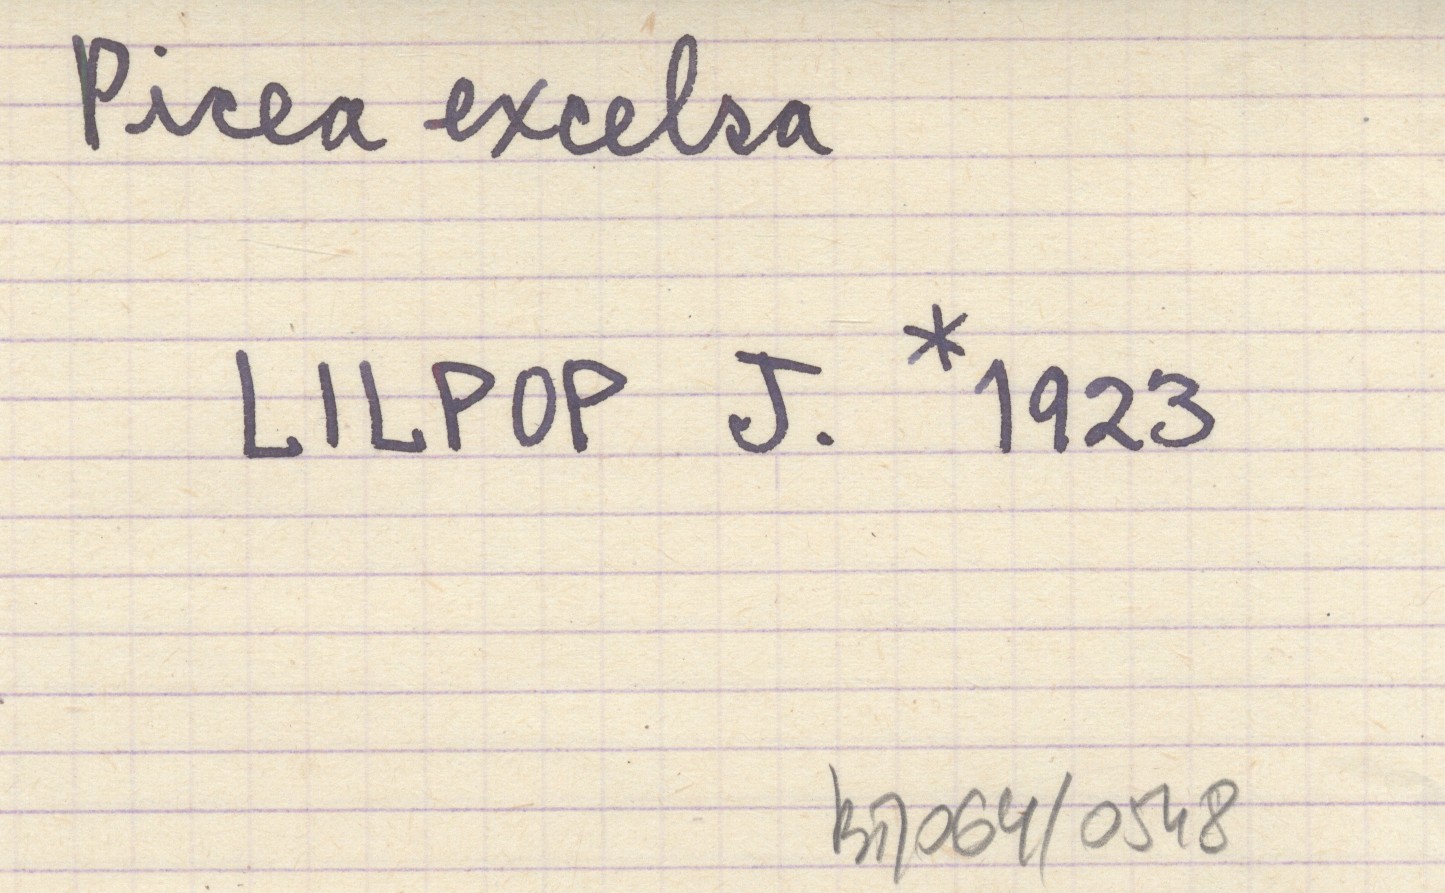 Picea excelsa
LILPOP J. *1923
064/0548